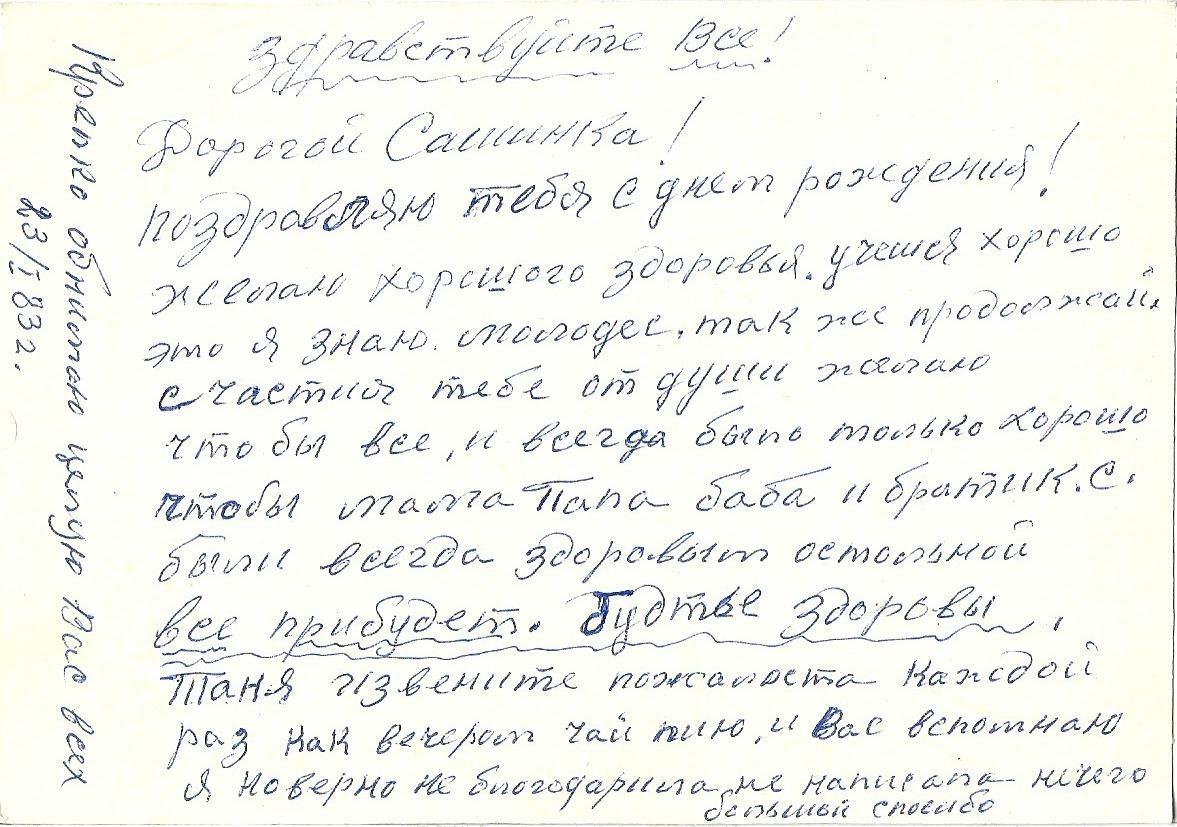 Здравствуйте Все!
Дорогой Сашинка!
поздравляю тебя с днем рождения!
желаю хорошого здоровья. учешся хорошо
это я знаю. молодес. так же продолжай.
счастия тебе от души желаю
что бы все, и всегда было только хорошо
чтобы мама Папа баба и братик. С.
были всегда здоровым остольной
все прибудет. Будтье здоровы.
Таня извените пожалоста каждой
раз как вечером чай пию, и Вас вспомнаю
я новерно не блогодарила не написала нечего
большый спосибо
Крепко обнимаю целую Вас всех
23/I 83 г.